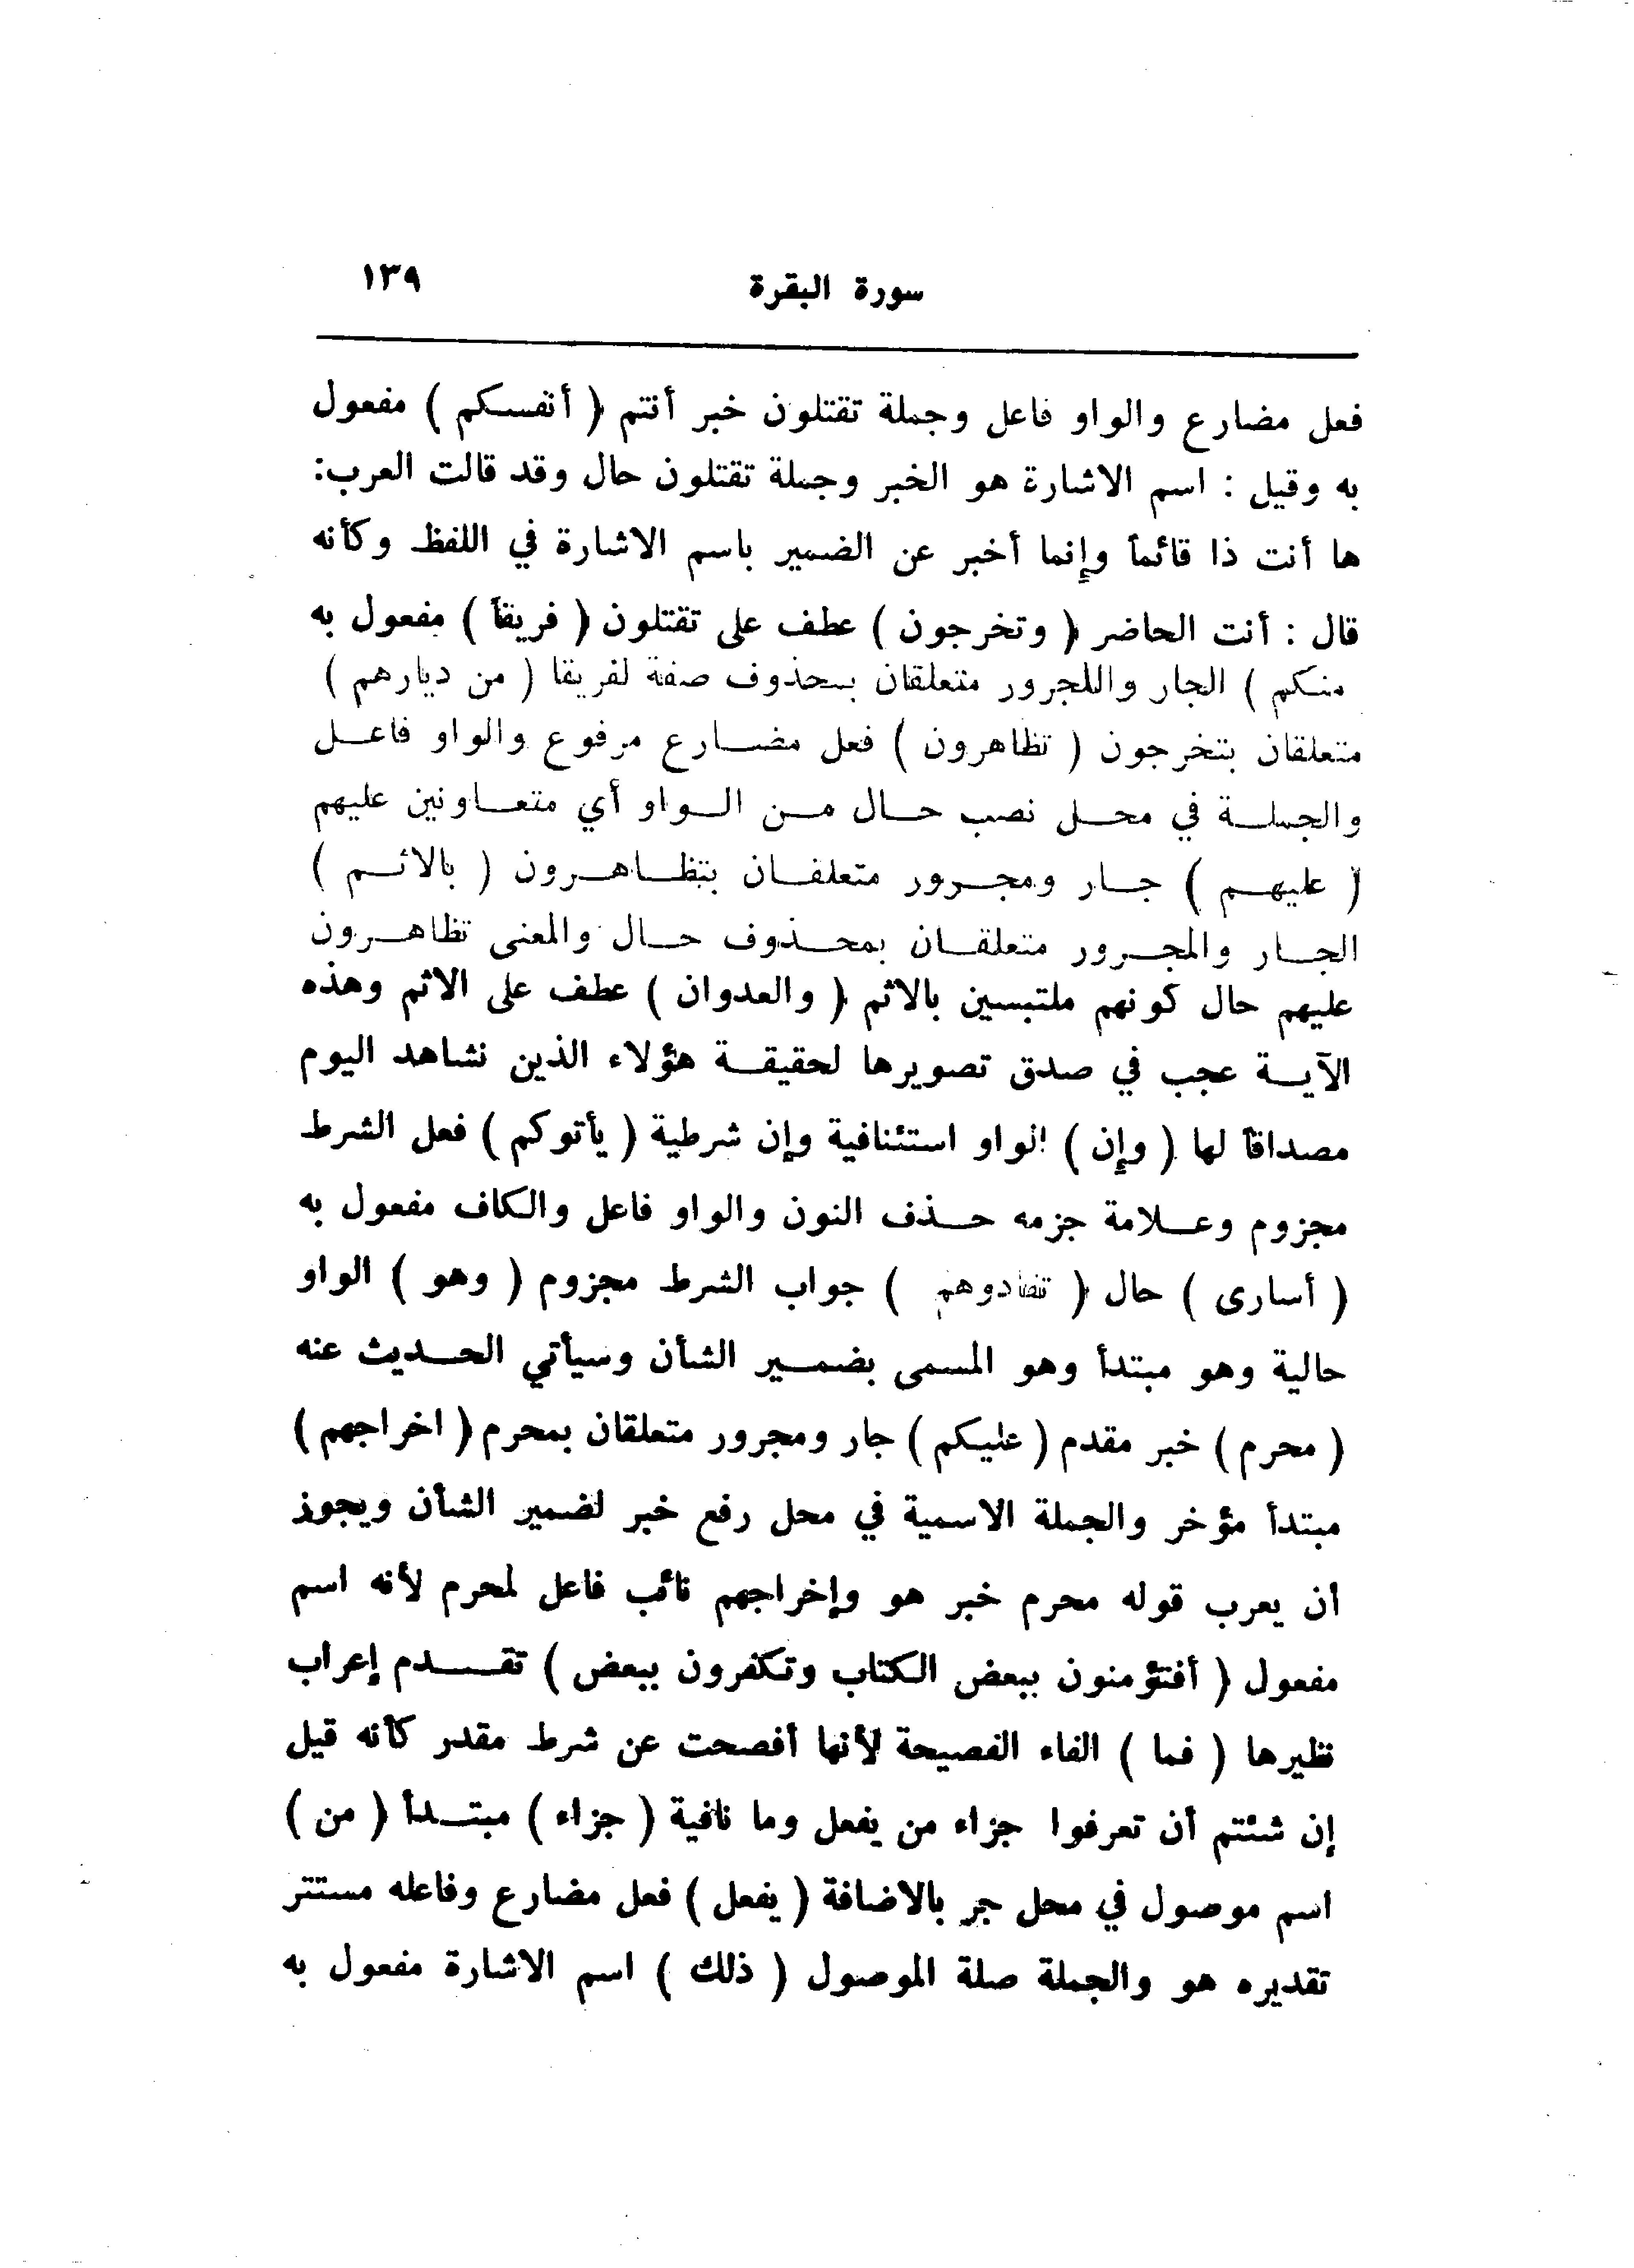 سورة البقرة ١٣٩
فعل مضارع والواو فاعل وجملة تقتلون خبر أنتم ( أنفسكم ) مفعول
به وقيل : اسم الاشارة هو الخبر وجملة تقتلون حال وقد قالت العرب:
ها أنت ذا قائماً وإنما أخبر عن الضمير باسم الاشارة في اللفظ وكأنه
قال : أنت الحاضر ( وتخرجون ) عطف على تقتلون ( فريقاً ) مفعول به
منكم ) الجار واللجرور متعلقان بمحذوف صفة لفريقا ( من ديارهم )
متعلقان بتخرجون ( تظاهرون ) فعل مضارع مرفوع والواو فاعل
والجملة في محل نصب حال من الواو أي متعاونين عليهم
( عليهم ) جار ومجرور متعلقان بتظاهرون ( بالائم )
الجار والمجرور متعلقان بمحذوف حال والمعنى تظاهرون
عليهم حال كونهم ملتبسين بالاثم ( والعدوان ) عطف على الاثم وهذه
الآية عجب في صدق تصويرها لحقيقة هؤلاء الذين نشاهد اليوم
مصداقاً لها ( وإن ) الواو استئنافية وإن شرطية ( يأتوكم ) فعل الشرط
مجزوم وعلامة جزمه حذف النون والواو فاعل والكاف مفعول به
( أسارى ) حال ( تفادوهم ) جواب الشرط مجزوم ( وهو ) الواو
حالية وهو مبتدأ وهو المسمى بضمير الشأن وسيأتي الحديث عنه
( محرم ) خبر مقدم ( عليكم ) جار ومجرور متعلقان بمحرم ( اخراجهم )
مبتدأ مؤخر والجملة الاسمية في محل رفع خبر لضمير الشأن ويجوز
أن يعرب قوله محرم خبر هو وإخراجهم نائب فاعل لمحرم لأنه اسم
مفعول ( أفتؤمنون ببعض الكتاب وتكفرون ببعض ) تقدم إعراب
نظيرها ( فما ) الفاء الفصيحة لأنها أفصحت عن شرط مقدر كأنه قيل
إن شئتم أن تعرفوا جزاء من يفعل وما نافية ( جزاء ) مبتدأ ( من )
اسم موصول في محل جر بالاضافة ( يفعل ) فعل مضارع وفاعله مستتر
تقديره هو والجملة صلة الموصول ( ذلك ) اسم الاشارة مفعول به